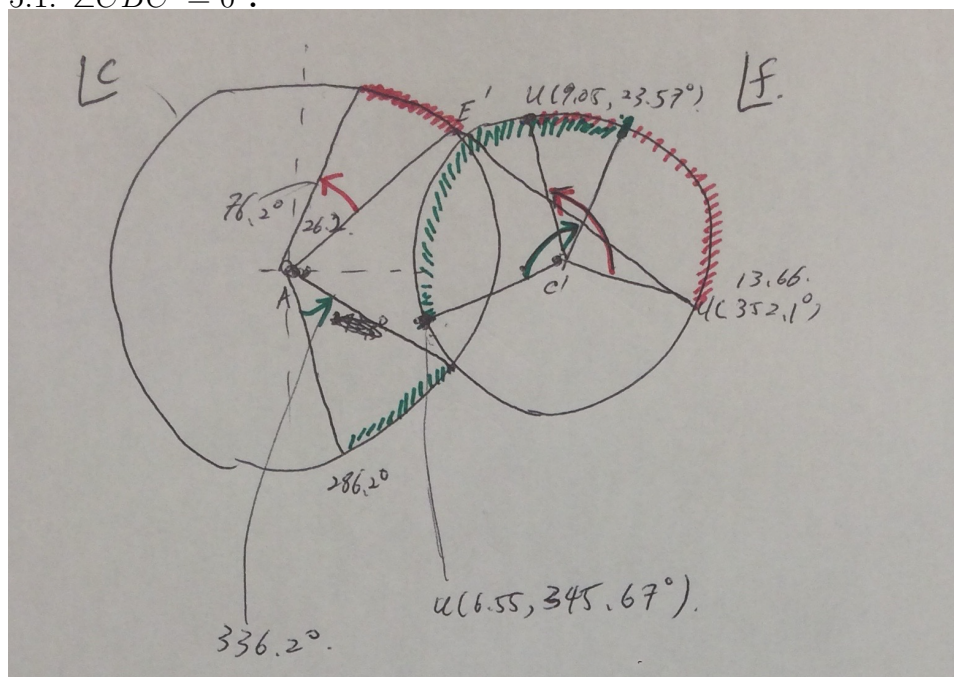 ⌊C
E'
u(9.05, 23.57°)
⌊f.
76.2°
26.2
A
C'
13.66.
u(352.1°)
286.2°
u(6.55, 345.67°).
336.2°.